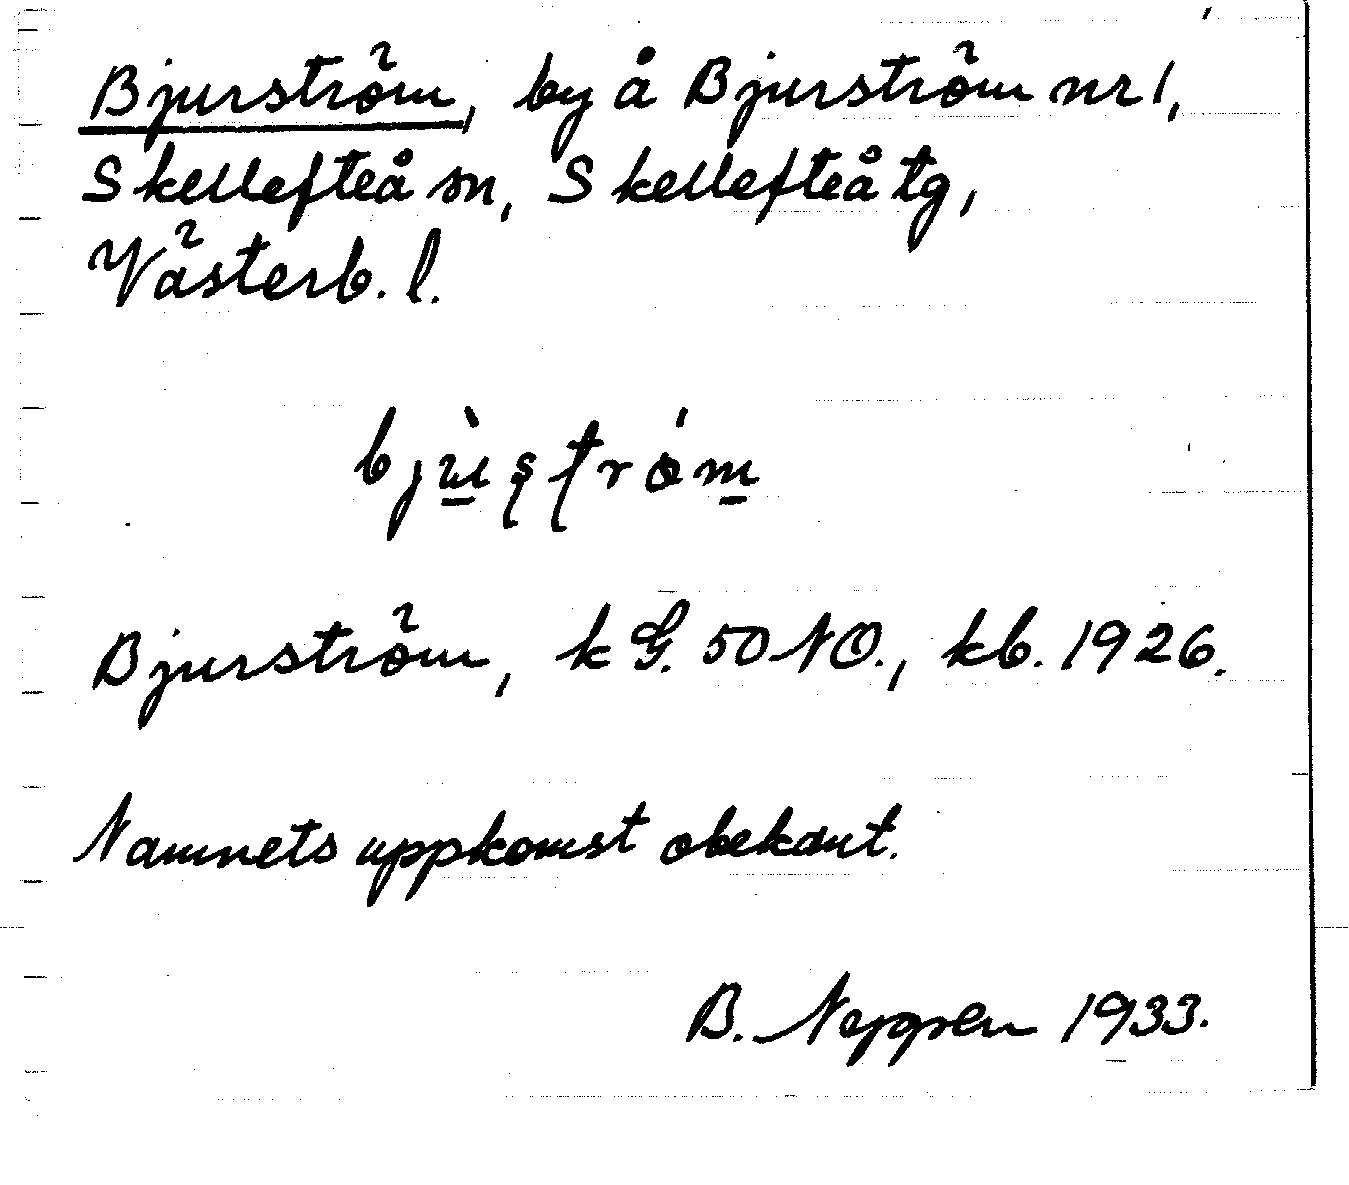 Bjurström, by å Bjurström nr 1,
Skellefteå sn, Skellefteå tg,
Västerb. l.
Bjurström, k G. 50 NO., kb. 1926.
Namnets uppkomst obekant.
B. 1933.